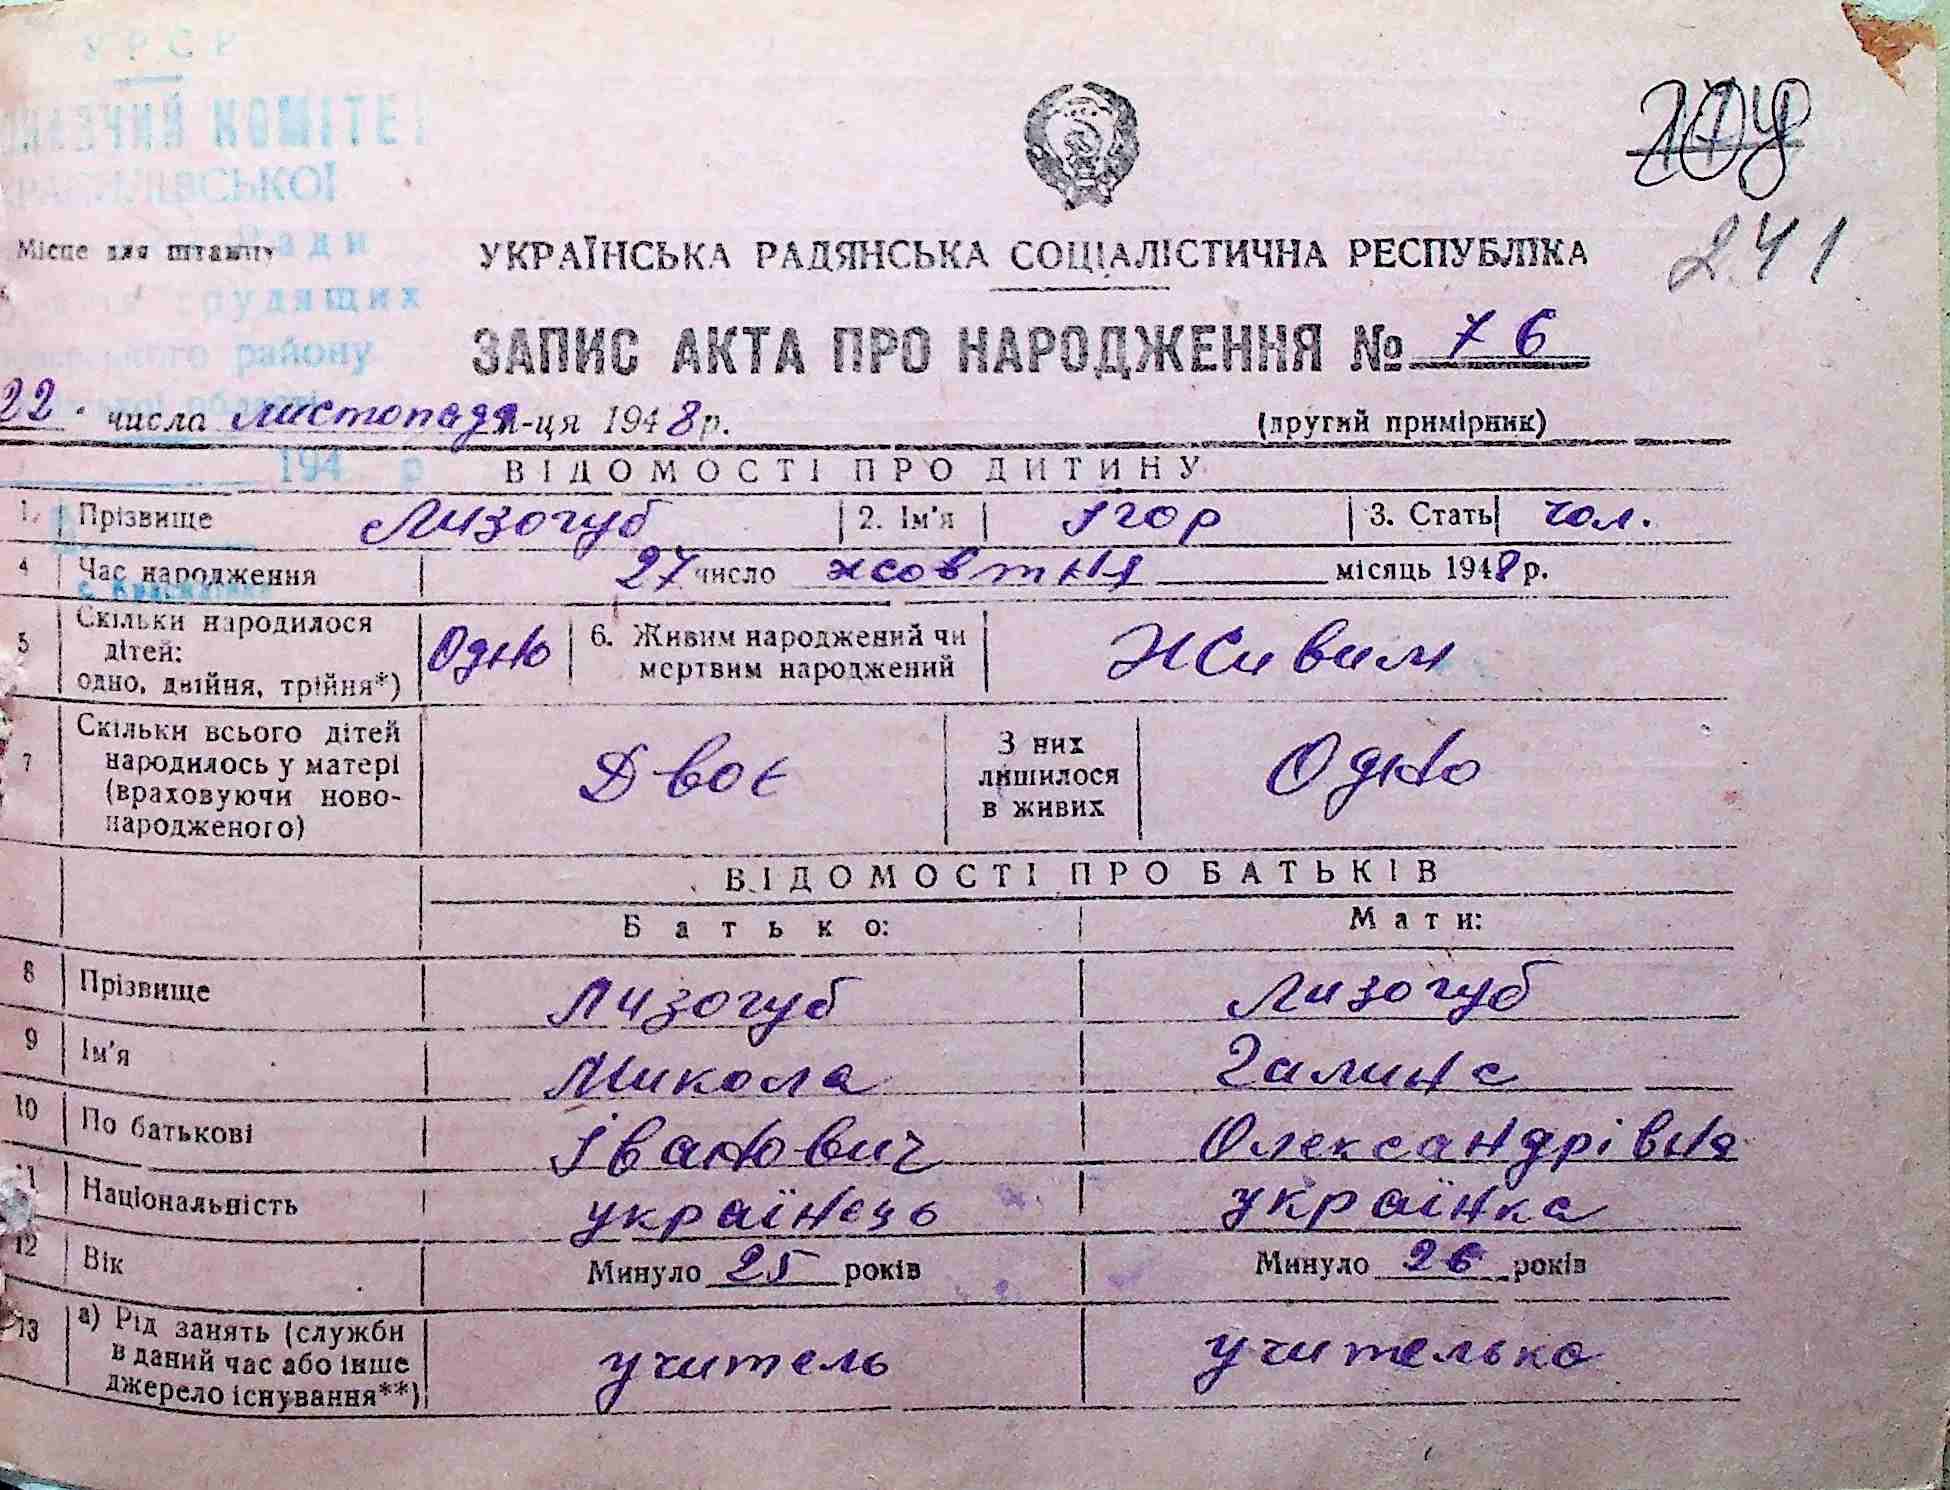 УРСР
КОМІТЕ
СЬКОЇ
Ради
Місце для штампу
трудящих
району
241
УКРАЇНСЬКА РАДЯНСЬКА СОЦІАЛІСТИЧНА РЕСПУБЛІКА
ЗАПИС АКТА ПРО НАРОДЖЕННЯ № 76
22 числа листопада м-ця 1948 р. (другий примірник)
194 р
ВІДОМОСТІ ПРО ДИТИНУ
1. Прізвище Лизогуб 2. Ім'я Ігор 3. Стать чол.
4 Час народження 27 число жовтня місяць 1948 р.
5 Скільки народилося дітей: одно, двійня, трійня*) Одно 6. Живим народжений чи мертвим народжений Живим
7 Скільки всього дітей народилось у матері (враховуючи ново-народженого) Двоє З них лишилося в живих Одно
ВІДОМОСТІ ПРО БАТЬКІВ
Батько: Мати:
8 Прізвище Лизогуб Лизогуб
9 Ім'я Микола Галина
10 По батькові Іванович Олександрівна
11 Національність українець українка
12 Вік Минуло 25 років Минуло 26 років
13 а) Рід занять (служби в даний час або інше джерело існування**) учитель учителька